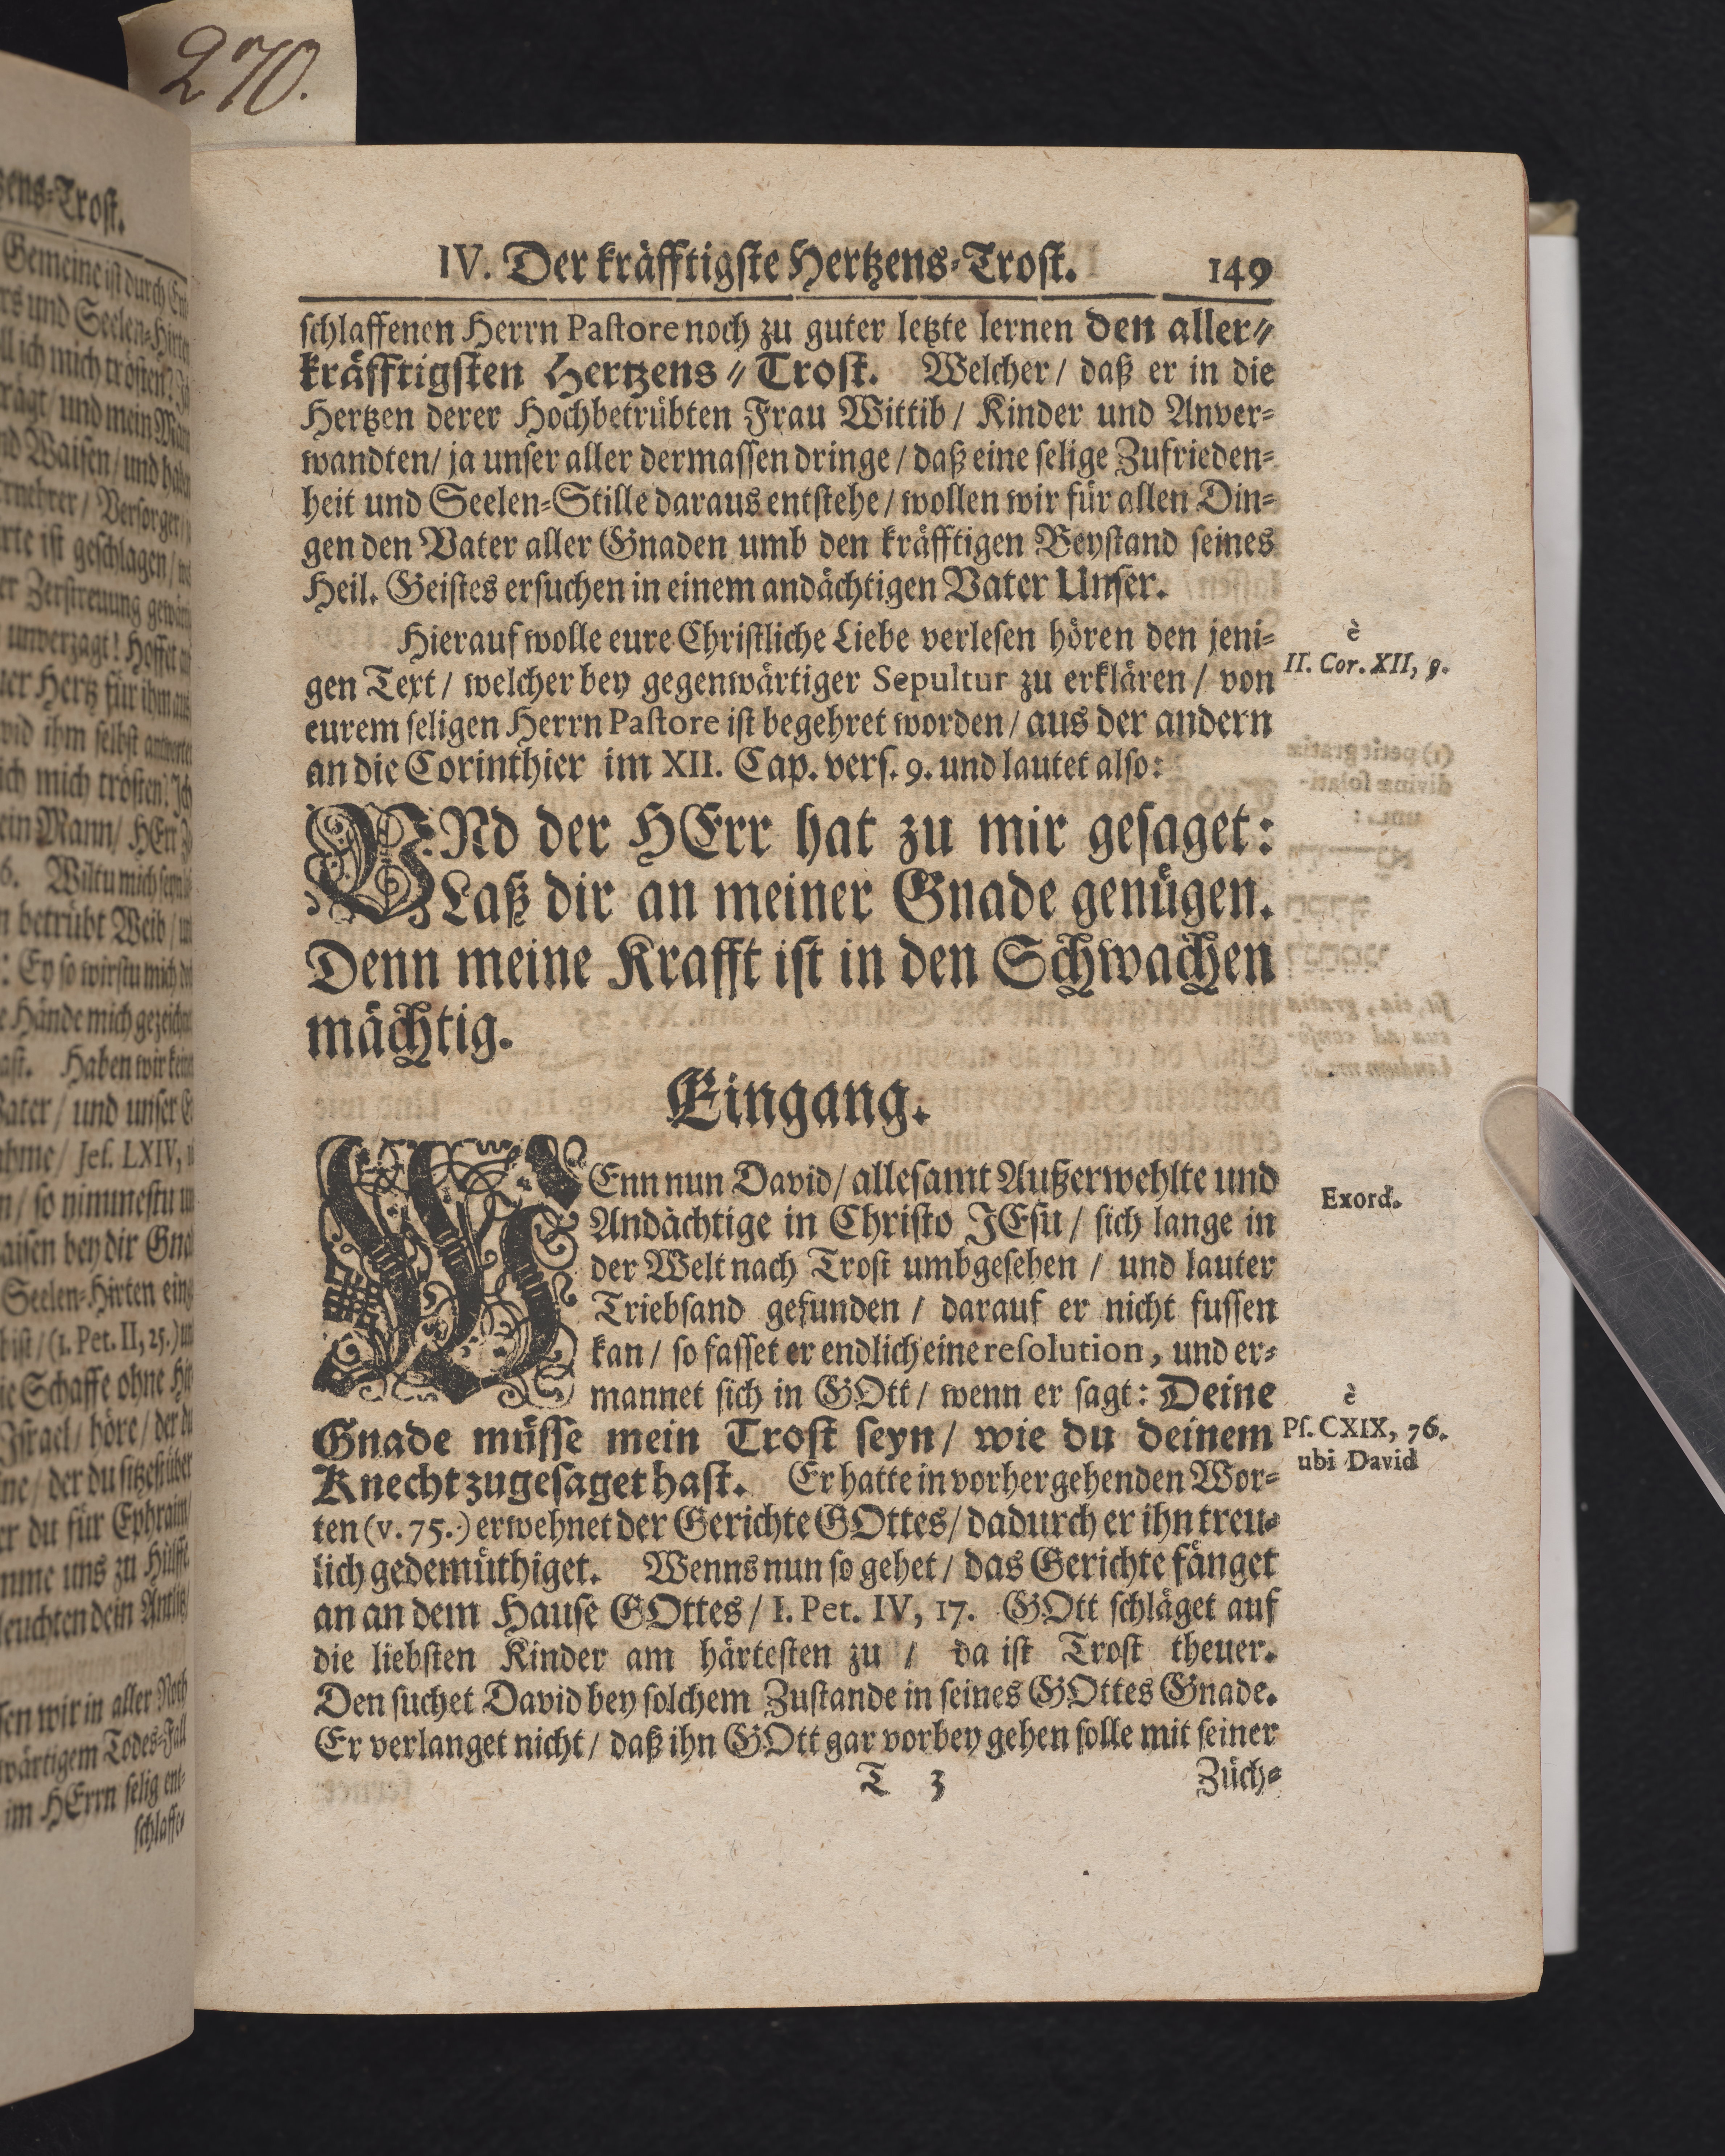 270.
IV. Der kräfftigste Hertzens-Trost. 149
schlaffenen Herrn Pastore noch zu guter letzte lernen den aller-
kräfftigsten Hertzens-Trost. Welcher / daß er in die
Hertzen derer Hochbetrübten Frau Wittib / Kinder und Anver-
wandten / ja unser aller dermassen dringe / daß eine selige Zufrieden-
heit und Seelen-Stille daraus entstehe / wollen wir für allen Din-
gen den Vater aller Gnaden umb den kräfftigen Beystand seines
Heil. Geistes ersuchen in einem andächtigen Vater Unser.
Hierauf wolle eure Christliche Liebe verlesen hören den jeni-
gen Text / welcher bey gegenwärtiger Sepultur zu erklären / von
eurem seligen Herrn Pastore ist begehret worden / aus der andern
an die Corinthier im XII. Cap. vers. 9. und lautet also:
è
II. Cor. XII, 9.
UNd der HErr hat zu mir gesaget:
Laß dir an meiner Gnade genügen.
Denn meine Krafft ist in den Schwachen
mächtig.
Eingang.
WEnn nun David / allesamt Außerwehlte und
Andächtige in Christo JEsu / sich lange in
der Welt nach Trost umbgesehen / und lauter
Triebsand gefunden / darauf er nicht fussen
kan / so fasset er endlich eine resolution, und er-
mannet sich in GOtt / wenn er sagt: Deine
Gnade müsse mein Trost seyn / wie du deinem
Knecht zugesaget hast. Er hatte in vorhergehenden Wor-
ten (v. 75.) erwehnet der Gerichte GOttes / dadurch er ihn treu-
lich gedemüthiget. Wenns nun so gehet / das Gerichte fänget
an an dem Hause GOttes / I. Pet. IV, 17. GOtt schläget auf
die liebsten Kinder am härtesten zu / da ist Trost theuer.
Den suchet David bey solchem Zustande in seines GOttes Gnade.
Er verlanget nicht / daß ihn GOtt gar vorbey gehen solle mit seiner
Exord.
è
Ps. CXIX, 76.
ubi David
T 3 Züch-